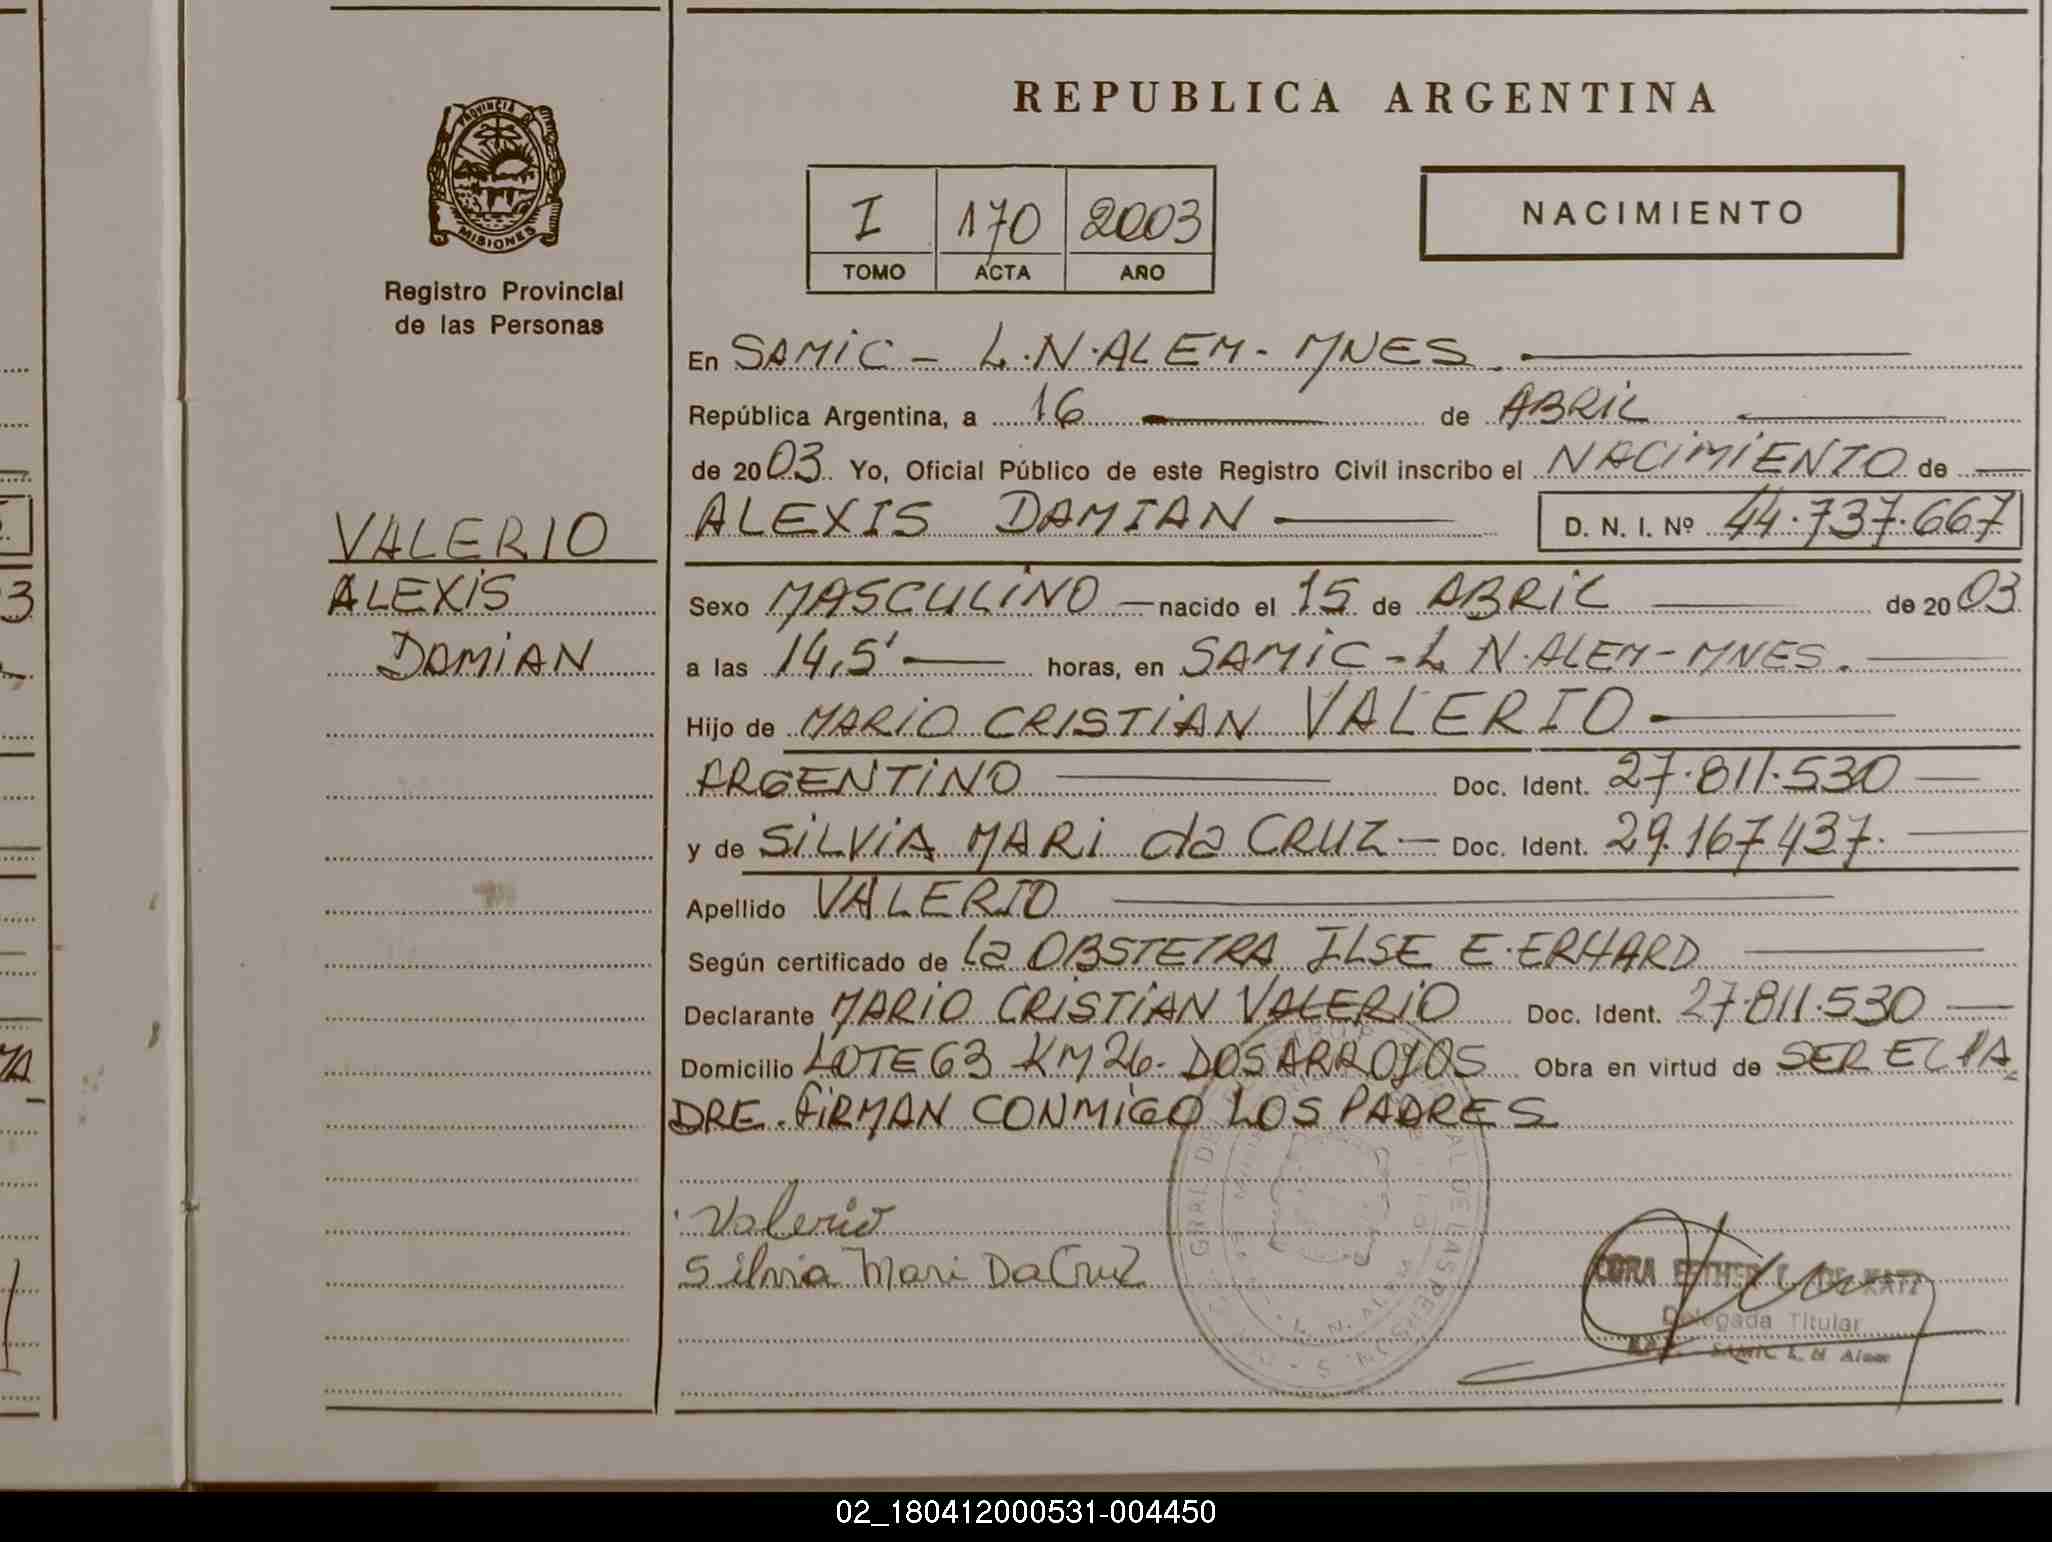 REPUBLICA ARGENTINA
PROVINCIA DE
MISIONES
Registro Provincial
de las Personas
I 170 2003
TOMO ACTA AÑO
NACIMIENTO
En SAMIC - L.N.ALEM - MNES.
República Argentina, a 16 de ABRIL
de 2003 Yo, Oficial Público de este Registro Civil inscribo el NACIMIENTO de
VALERIO
ALEXIS
DAMIAN
ALEXIS DAMIAN D. N. I. Nº 44.737.667
Sexo MASCULINO nacido el 15 de ABRIL de 2003
a las 14,5' horas, en SAMIC - L N.ALEM - MNES.
Hijo de MARIO CRISTIAN VALERIO
ARGENTINO Doc. Ident. 27.811.530
y de SILVIA MARI da CRUZ Doc. Ident. 29.167437.
Apellido VALERIO
Según certificado de la OBSTETRA ILSE E. ERHARD
Declarante MARIO CRISTIAN VALERIO Doc. Ident. 27.811.530
Domicilio LOTE 63 KM 26 - DOS ARROYOS Obra en virtud de SER EL PA
DRE. FIRMAN CONMIGO LOS PADRES
Valerio
Silvia Mari Da Cruz
ESTHER DE
Delegada Titular
SAMIC L. N. Alem
02_180412000531-004450